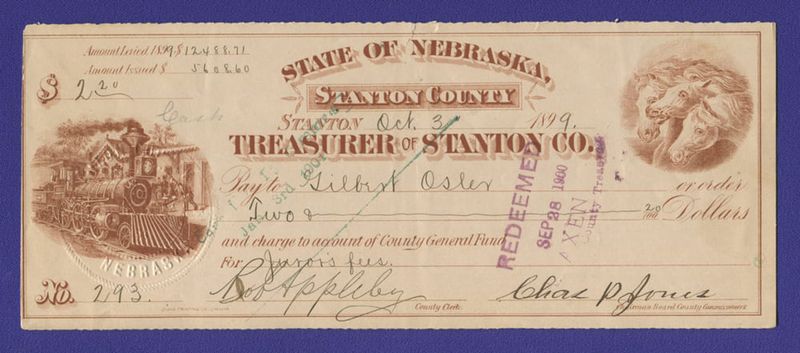 Amount Levied 1899 $ 12488.71
Amount Issued $ 5608.60
$ 2 20
Cash
STATE OF NEBRASKA,
STANTON COUNTY
STANTON Oct. 3 1899.
TREASURER OF STANTON CO.
Pay to Gilbert Osler or order
Two & 20/100 Dollars
and charge to account of County General Fund
For Juror's fees.
NEBRASKA
No. 293.
County Clerk.
Chas P. Jones
Chairman Board County Commissioners
REDEEMED
SEP 28 1900
County Treasurer
Jan 3rd 1901